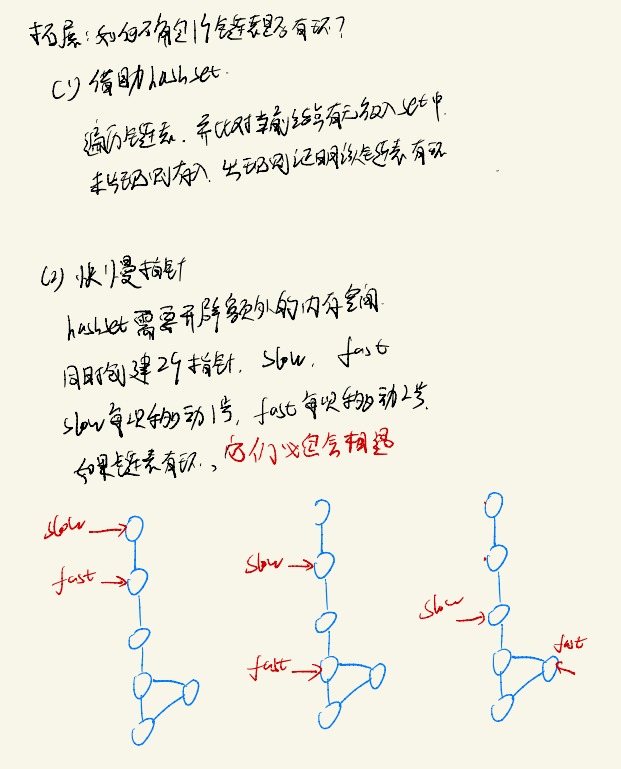 拓展：如何确定1个链表是否有环？
(1) 借助hashset.
遍历链表，并比对当前结点有无放入set中.
未出现则存入，出现则证明该链表有环
(2) 快慢指针
hashset需要开辟额外的内存空间.
同时创建2个指针，slow，fast
slow每次移动1步，fast每次移动2步.
如果链表有环，它们必定会相遇
slow
fast
slow
fast
slow
fast